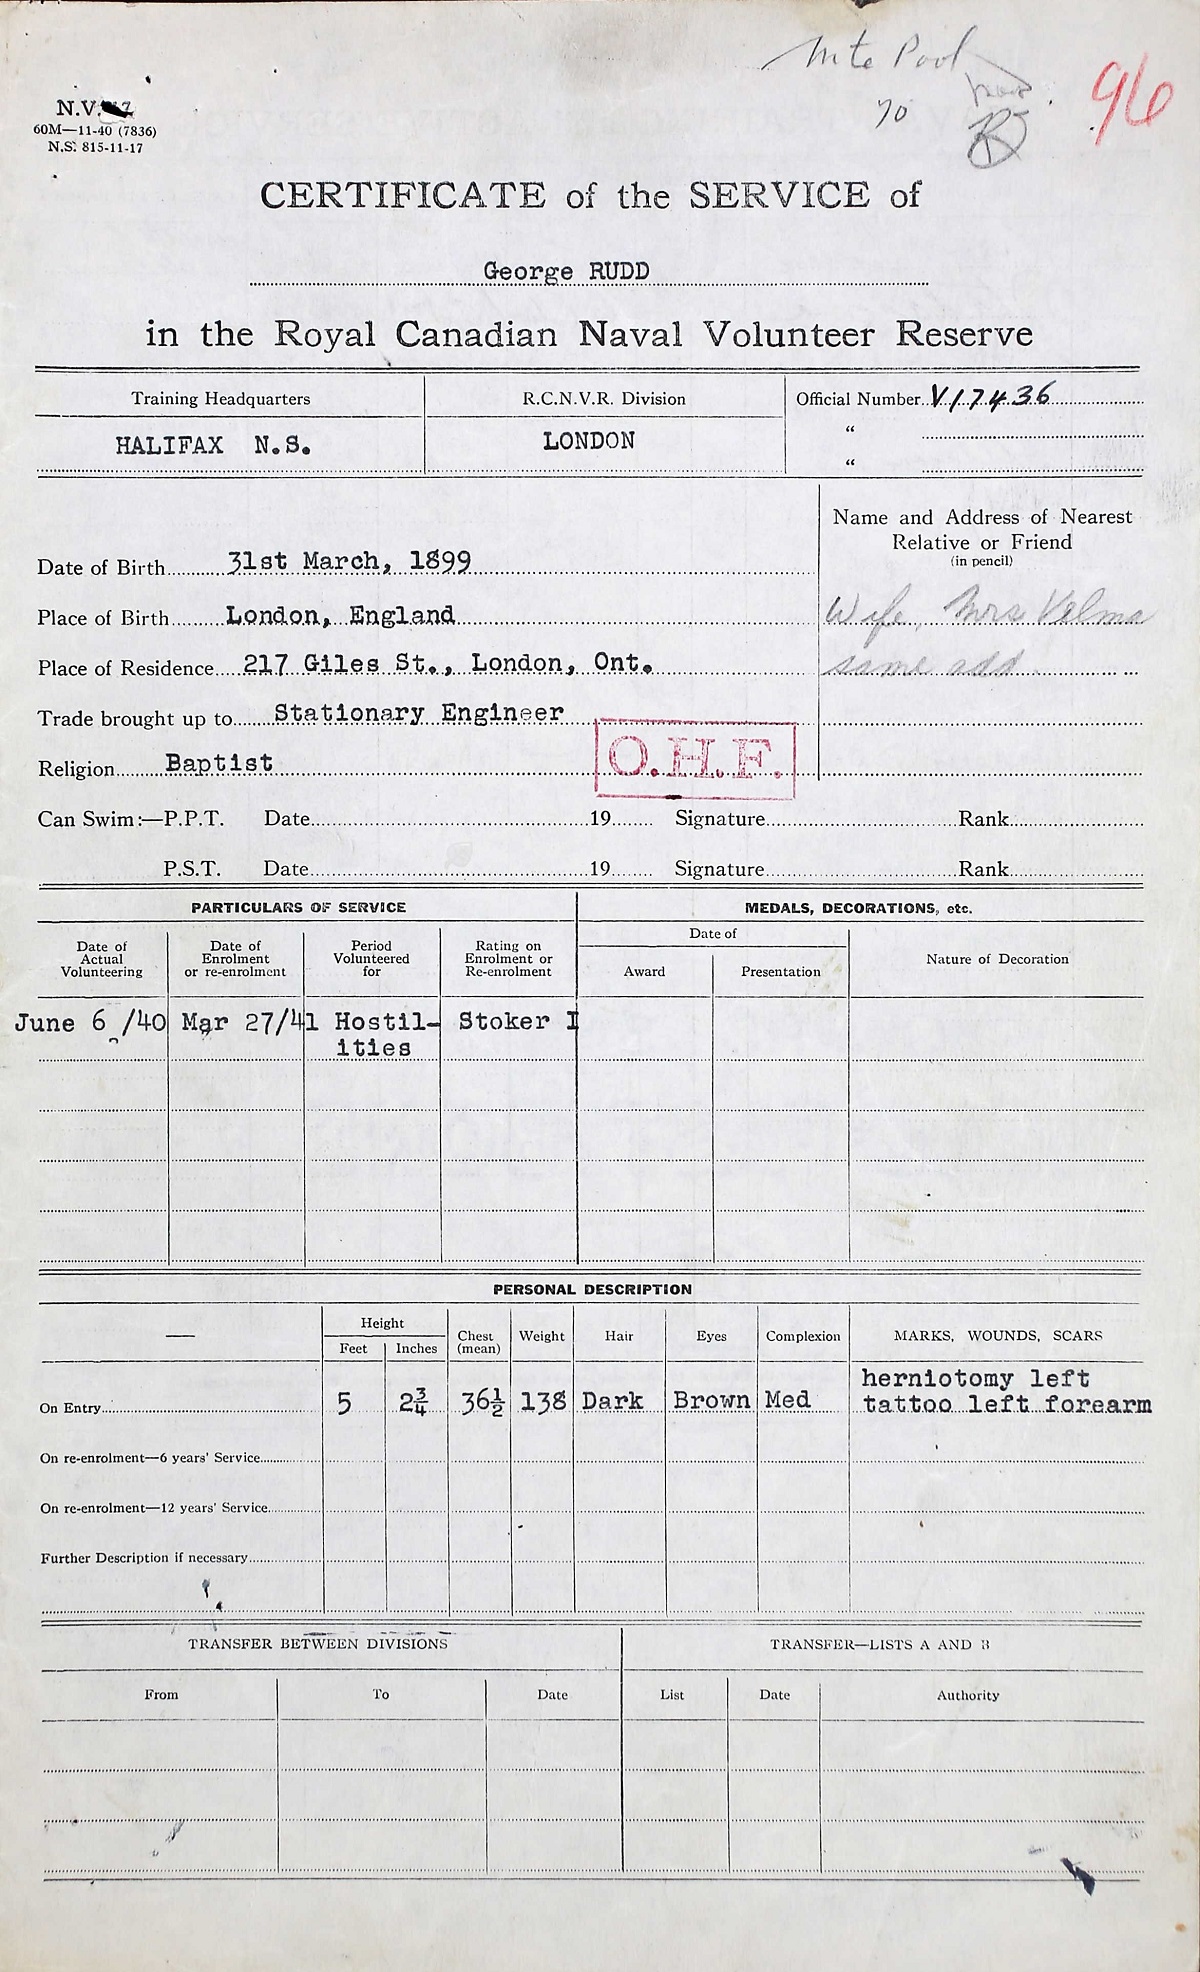 Mte Pool
70
96
N.V.
60M—11-40 (7836)
N.S. 815-11-17
CERTIFICATE of the SERVICE of
George RUDD
in the Royal Canadian Naval Volunteer Reserve
Training Headquarters R.C.N.V.R. Division Official Number V17436
HALIFAX N.S. LONDON "
"
Name and Address of Nearest
Relative or Friend
(in pencil)
Date of Birth 31st March, 1899
Place of Birth London, England Wife, Mrs Velma
Place of Residence 217 Giles St., London, Ont. same add.
Trade brought up to Stationary Engineer
Religion Baptist O.H.F.
Can Swim:—P.P.T. Date 19 Signature Rank
P.S.T. Date 19 Signature Rank
PARTICULARS OF SERVICE MEDALS, DECORATIONS, etc.
Date of Actual Volunteering Date of Enrolment or re-enrolment Period Volunteered for Rating on Enrolment or Re-enrolment Date of Nature of Decoration
Award Presentation
June 6 /40 Mar 27/41 Hostil- Stoker I
ities
PERSONAL DESCRIPTION
— Height Chest (mean) Weight Hair Eyes Complexion MARKS, WOUNDS, SCARS
Feet Inches
herniotomy left
On Entry 5 2¾ 36½ 138 Dark Brown Med tattoo left forearm
On re-enrolment—6 years' Service
On re-enrolment—12 years' Service
Further Description if necessary
TRANSFER BETWEEN DIVISIONS TRANSFER—LISTS A AND B
From To Date List Date Authority